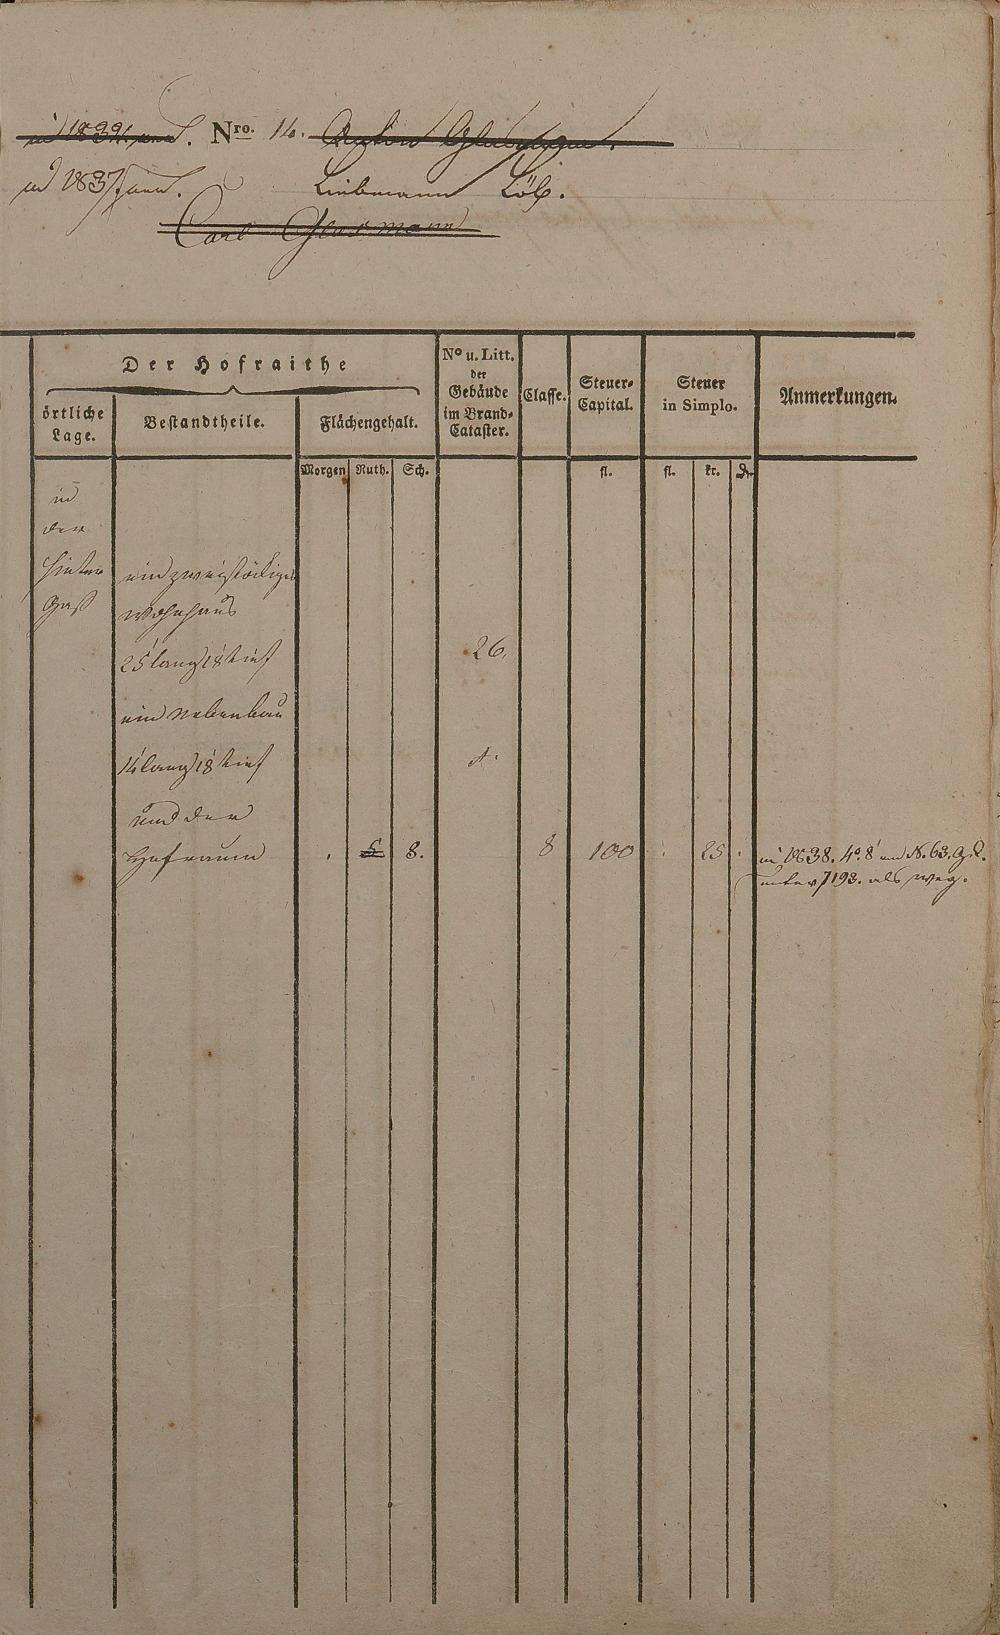 in 1834. und. Nro. 16. Anton
in 1837 und. Liebmann Löb.
Carl Glassmann
Der Hofraithe
örtliche Lage.
Bestandtheile.
Flächengehalt.
Morgen Ruth. Sch.
No u. Litt.
der
Gebäude
im Brand-
Cataster.
Classe.
Steuer-
Capital.
fl.
Steuer
in Simplo.
fl. kr. d.
Anmerkungen.
in
der
hinter
Gaß
ein zweistöckiges
Wohnhaus
25' lang 18' tief 26.
ein Nebenbau
14' lang 18' tief A.
und der
Hofraum . 5 8. 8 100 . 25 . in 1838. 4° 8' No. 63.
unter 1193. als Weg.